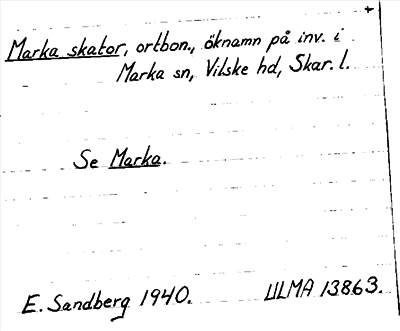 Marka skator, ortbon., öknamn på inv. i
Marka sn, Vilske hd, Skar. l.
Se Marka.
E. Sandberg 1940. ULMA 13863.